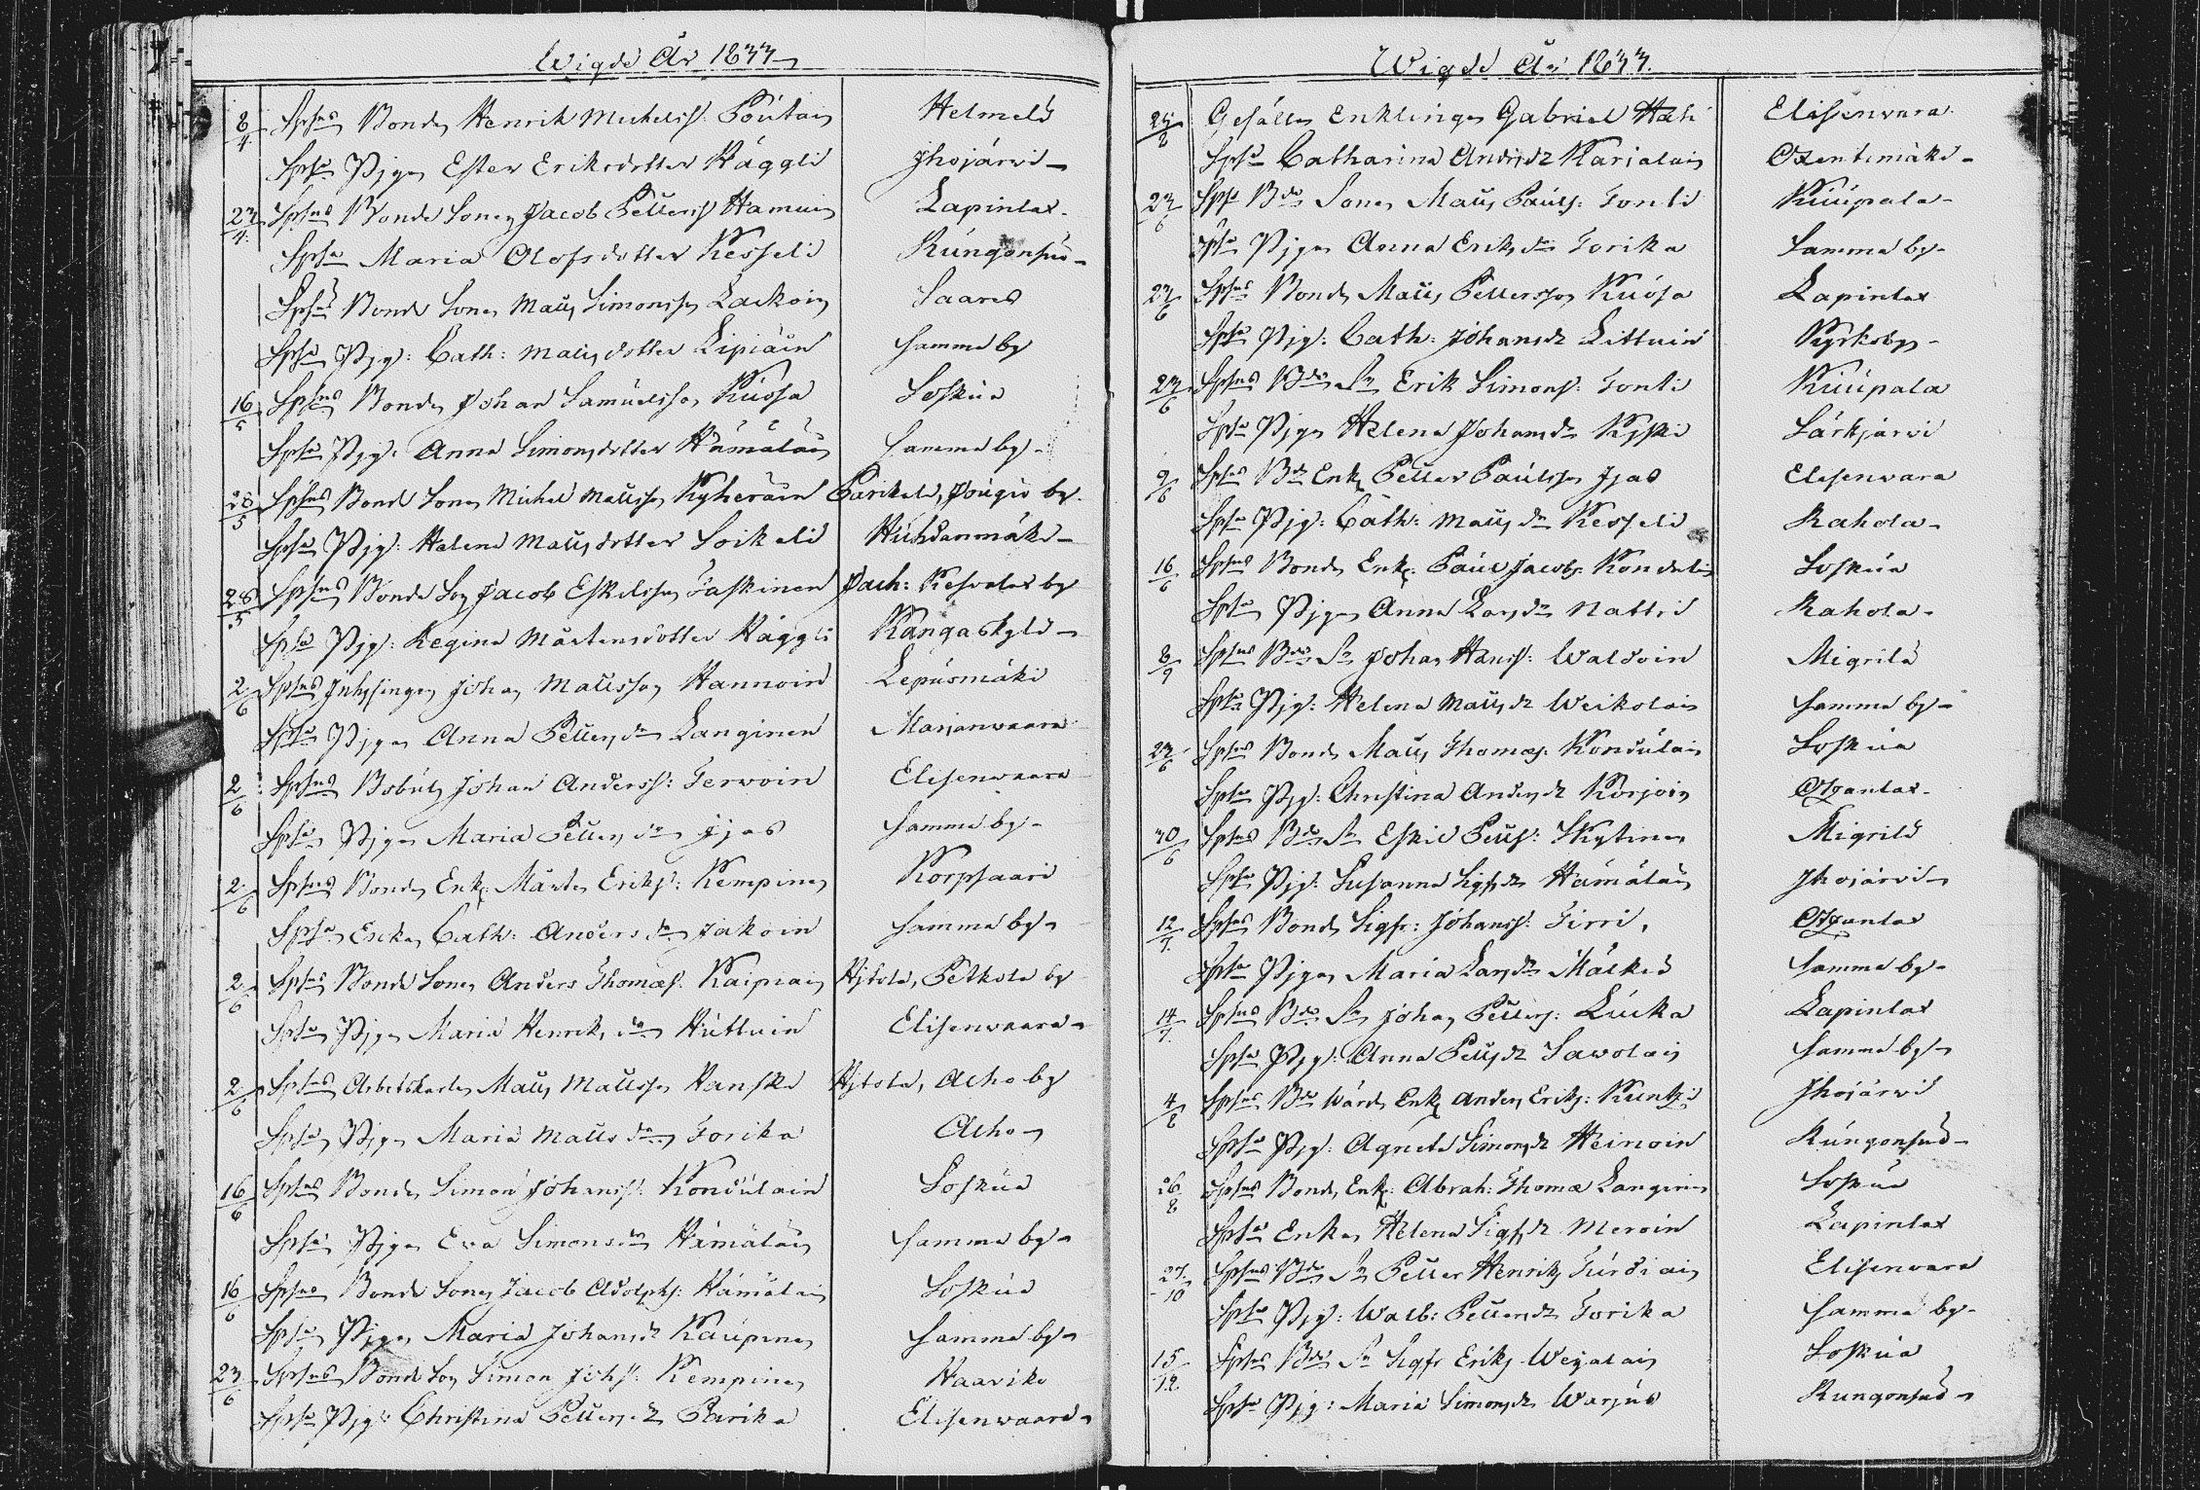 Wigde År 1833
8/4 Spsus Bonden Henrik Michelss: Poutain Helmelä
Spsa Pigan Ester Eriksdotter Häggli Ihojärvi
23/4 Spsus Bonde Sonen Jacob Petterss Hamuin Lapinlax
Spsa Maria Olofsdotter Kesseli Rungonsuo
Spsus Bonde Sonen Matts Simonsson Laikoin Saares
Spsa Pig: Cath: Mattsdotter Lipiäin samma by
16/5 Spsus Bonden Johan Samuelsson Kuosa Soskua
Spsa Pig: Anna Simonsdotter Hämäläin samma by
28/5 Spsus Bonde Sonen Michel Mattsson Kyheröin Parikala, Pougio by
Spsa Pig: Helena Mattsdotter Soikeli Huhdanmäki
28/5 Spsus Bonde Son Jacob Eskelsson Taskinen Jach: Kesvalax by
Spsa Pig: Regina Mårtensdotter Häggli Kangaskylä
2/6 Spsus Inhysingen Johan Mattsson Hannoin Lepusmäki
Spsa Pigan Anna Pettersdr Langinen Marjanwaara
2/6 Spsus Bobuln Johan Anderss: Terwoin Elisenwaara
Spsa Pigan Maria Pettersdr Ijas samma by
2/6 Spsus Bonden Enkl: Mårten Erikss: Kempinen Korpsaari
Spsa Enkan Cath: Andersdr Jakoin samma by
2/6 Spsus Bonde Sonen Anders Thomass: Kaipiain Hjtola, Petkola by
Spsa Pigan Maria Henriksdr Huttuin Elisenwaara
2/6 Spsus Arbetskarlen Matts Mattsson Hanski Hjtola, Aiho by
Spsa Pigan Maria Mattsdr Torika Aiho
16/6 Spsus Bonden Simon Johanss: Kondulain Soskua
Spsa Pigan Eva Simonsdr Hämäläin samma by
16/6 Spsus Bonde Sonen Jacob Adolphs: Hämäläin Soskua
Spsa Pigan Maria Johansdr Kaupinen samma by
23/6 Spsus Bonde Son Simon Johs: Kempinen Haaviko
Spsa Pig: Christina Pettersdr Parika Elisenwaara
Wigde År 1833.
Gesällen Enklingen Gabriel Elisenvara
Spsa Catharina Andersdr Karialain
23/6 Spss Bde Sonen Matts Paulss: Tonti Kuupala
Spsa Pigan Anna Eriksdr Torika Samma by
Spsus Bonden Matts Pettersson Kuosa Lapinlax
Spsa Pig: Cath: Johansdr Littuin Kyrkoby
23/6 Spsus Bde Sn Erik Simons: Tonti Kuupala
Spsa Pigan Helena Johansdr Kyski Särkjärvi
9/6 Spsus Bde Enkl Petter Paulsson Ijas Elisenvara
Spsa Pig: Cath: Mattsdr Kesseli Rahola
16/6 Spsus Bonden Enkl: Paul Jacobs: Soskua
Spsa Pigan Anna Larsdr Nattri Rahola
8/9 Spsus Bde Sn Johan Hanss: Waldoin Migrilä
Spsa Pig: Helena Mattsdr Weikolain samma by
23/6 Spsus Bonden Matts Thomas: Kondulain Soskua
Spsa Pig: Christina Andersdr Korjoin
30/6 Spsus Bde Sn Eskil Petts: Skytinen Migrilä
Spsa Pig: Susanna Sigfsdr Hämäläin Ihojärvi
12/7 Spsus Bonden Sigfr: Johanss: Tirri,
Spsa Pigan Maria Larsdr Mälkiä samma by
14/7 Spsus Bde Sn Johan Petters: Lucka Lapinlax
Spsa Pig: Anna Pettsdr Sawolain samma by
4/8 Spsus Bde Enkl Anders Eriks: Kuntzi Ihojärvi
Spsa Pig: Agneta Simonsdr Heinoin Rungonsuo
26/8 Spsus Bonden Enkl: Abrah: Thomæ Langinen Soskua
Spsa Enkan Helena Sigfsdr Meroin Lapinlax
27/10 Spsus Bde Sn Petter Henriks Turdiain Elisenvara
Spsa Pig: Walb: Pettersdr Torika samma by
15/12 Spsus Bde Sn Sigfr Eriks Weijalain Soskua
Spsa Pig: Maria Simonsdr Warjus Rungonsuo